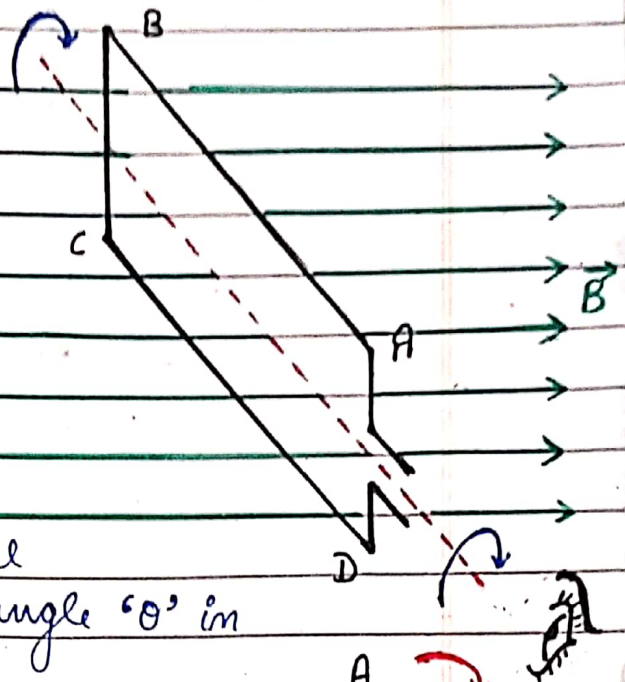 B
C
B⃗
A
D
l
angle ‘θ’ in
A